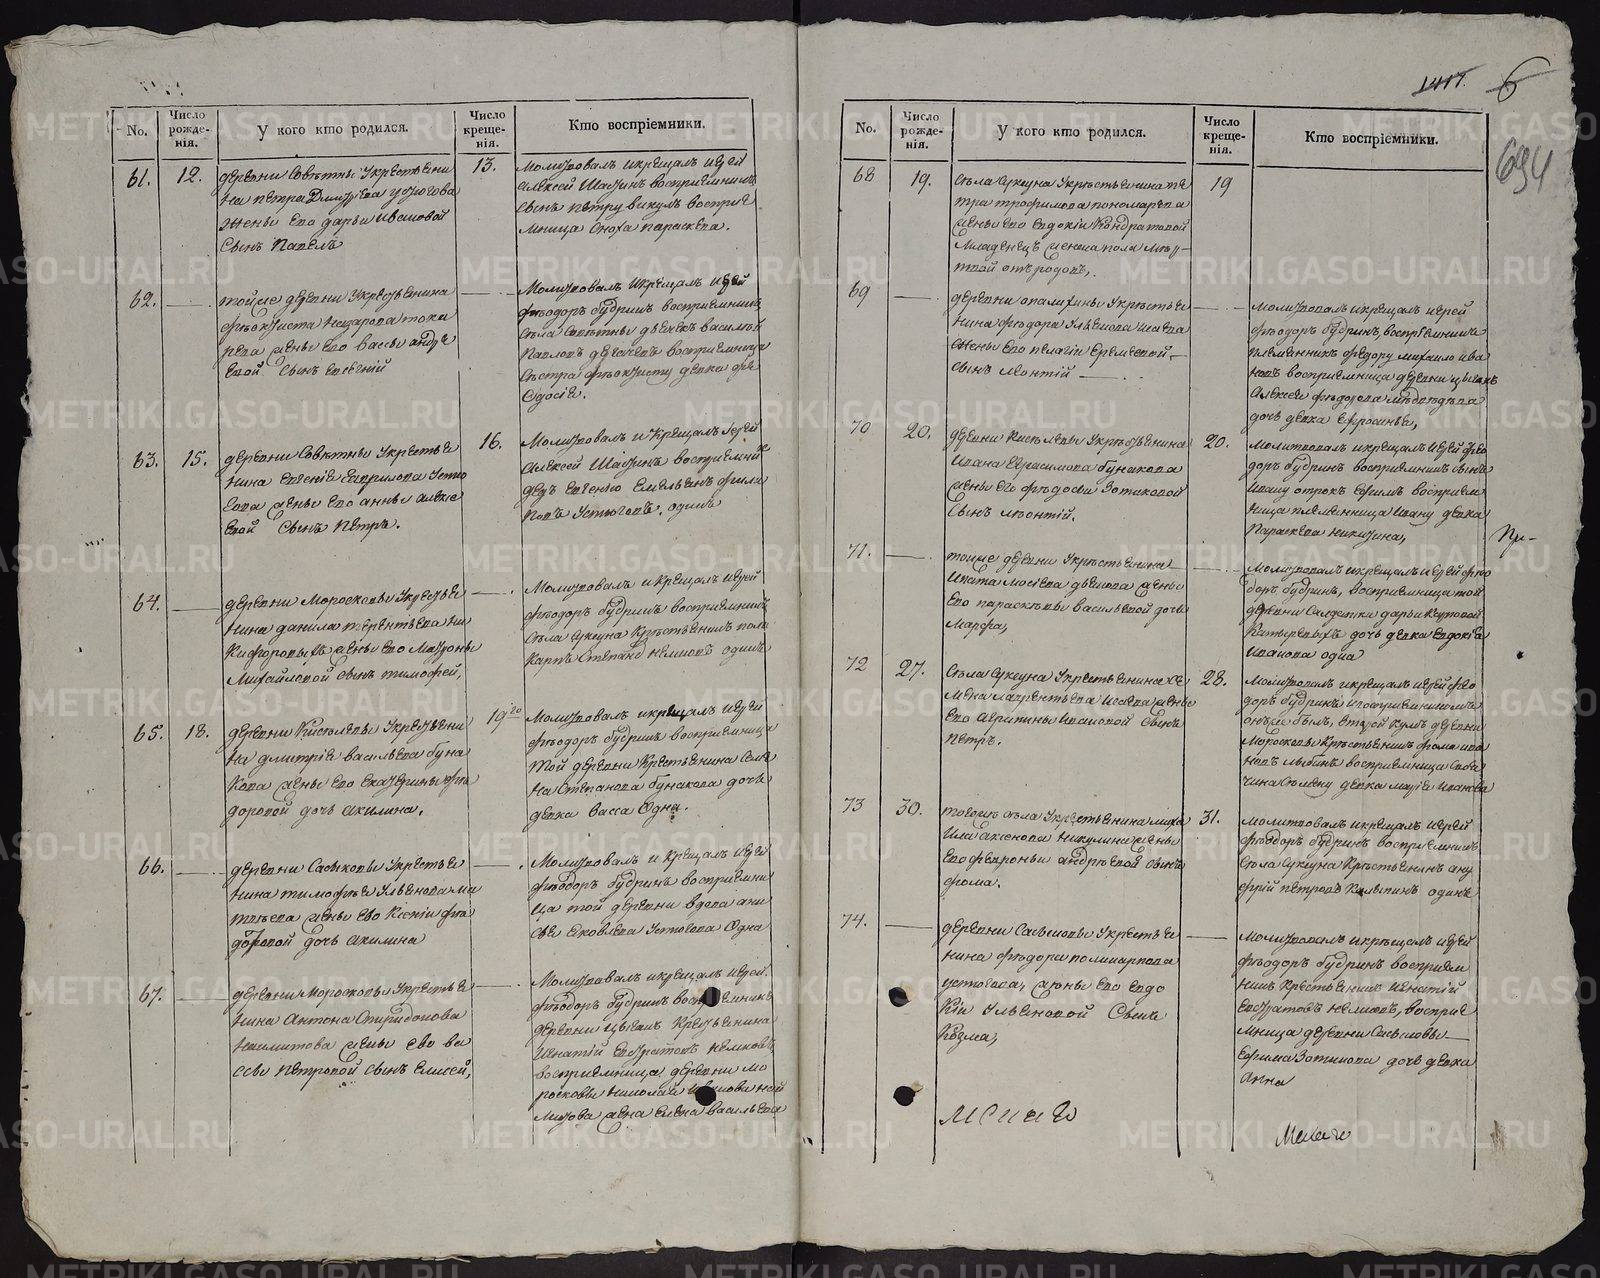 1417. 6
694
No.
Число рожде-нія.
У кого кто родился.
Число креще-нія.
Кто воспріемники.
61. 12.
деревни Совѣтны Укрестьяни
на петра Димитріева устюгова
жены Ево дарьи ивановой
Сынъ Павелъ
13.
Молитвовалъ икрещалъ иерей
алексей восприемникъ
Сынъ петру викулъ восприе
мница Сноха параскева.
62.
тойже деревни Укрестьянина
феоктиста назарова тока
рева жены Ево вассы андре
евой Сынъ Евгений
Молитвовалъ икрещалъ иерей
фѣодоръ бубринъ восприемникъ
Села Совѣтны василий
Павловъ восприемница
Сестра феоктисту девка фе
одосія.
63. 15.
деревни Совѣтны Укрестья
нина Евгения Гаврилова Устю
гова жены Ево анны алексе
евой Сынъ Петръ.
16.
Молитвовалъ и Крещалъ Иерей
алексей восприемни
Евгению Емельянъ фили
повъ Устюговъ. одинъ
64.
деревни Морозковы Укрестья
нина данила терентьева ни
кифоровыхъ жены Ево Матроны
Михайловой Сынъ тимофей,
Молитвовалъ и Крещалъ иерей
фѣодоръ бубринъ восприемникъ
Села Сукеуна Крѣстьянинъ поли
карпъ Степановъ одинъ
65. 18.
деревни Киселевы Укрестьяни
на димитрія васильева буна
кова жены Ево Екатерины фео
доровой дочь акилина.
19го
Молитвовалъ икрещалъ иерей
фѣодоръ бубринъ восприемница
той деревни Крестьянина Семе
на Степанова бунакова дочь
девка васса Одна.
66.
деревни Сасыковы Укрестья
нина тимофея Ульянова ма
твѣева жены Ево Ксении фео
доровой дочь акилина
Молитвовалъ и Крещалъ иерей
фѣодоръ бубринъ восприемни
ца той деревни вдова ани
сья яковлева Устюгова Одна
67.
деревни Морозковы Укрестья
нина Антона Спиридонова
жены Ево ва
ссы петровой Сынъ Елисей,
Молитвовалъ икрещалъ иерей
фѣодоръ бубринъ восприемникъ
деревни Крестьянина
Игнатій
восприемница деревни мо
розковы николая
жена Елена васильева
No.
Число рожде-нія.
У кого кто родился.
Число креще-нія.
Кто воспріемники.
68 19.
Села Сукеуна Укрестьянина пе
тра трофимова пономарева
жены Ево Евдокіи Кондратовой
Младенецъ женска пола мерт-
твой отъ родовъ,.
19
69
деревни опалихины Укрестья
нина фѣодора Ульянова
жены Ево пелагіи Еремеевой
Сынъ леонтій
Молитвовалъ икрещалъ иерей
фѣодоръ бубринъ, восприемникъ
племянникъ федору михаило ива
новъ восприемница деревни
алексея фѣодорова медведева
дочь девка Ефросинья,
70 20.
деревни Киселевы Укрестьянина
ивана Герасимова бунакова
жены Ево фѣодосьи Зотиковой
Сынъ леонтій.
20.
Молитвовалъ икрещалъ иерей фео
доръ бубринъ восприемникъ Сынъ
ивану отрокъ Ефимъ восприем
ница племянница ивану девка
параскева никитина,
При-
71.
тойже деревни Укрестьянина
ипата Мосіева жены
Ево параскевы васильевой дочь
марфа,
Молитвовалъ икрещалъ иерей фео
доръ бубринъ, восприемница той
деревни Салдатки дарьи
дочь девка Евдокія
иванова одна
72 27.
Села Сукеуна Укрестьянина Се
мена лаврентьева исаева жены
Ево агрипины ивановой Сынъ
петръ.
28.
Молитвовалъ икрещалъ иерей фео
доръ бубринъ ивосприемникомъ
онъже былъ, второй Кумъ деревни
Морозковы Крѣстьянинъ фома ива
новъ восприемница Свое
чина Семену девка марія иванова
73 30.
тогожъ села Укрестьянина миха
ила аксенова никулина жены
Ево февроньи андреевой Сынъ
фома.
31.
Молитвовалъ икрещалъ иерей
фѣодоръ бубринъ восприемникъ
Села Сукеуна Крѣстьянинъ ану
фрій петровъ одинъ
74.
деревни Сасыковы Укрестья
нина фѣодора поликарпова
устюгова, жены Ево Евдо
кіи Ульяновой Сынъ
Козма,
Молитвовалъ икрещалъ иерей
фѣодоръ бубринъ восприем
никъ Крестьянинъ игнатій
восприе
мница деревни Сасыковы
Ефима Зотикова дочь девка
анна